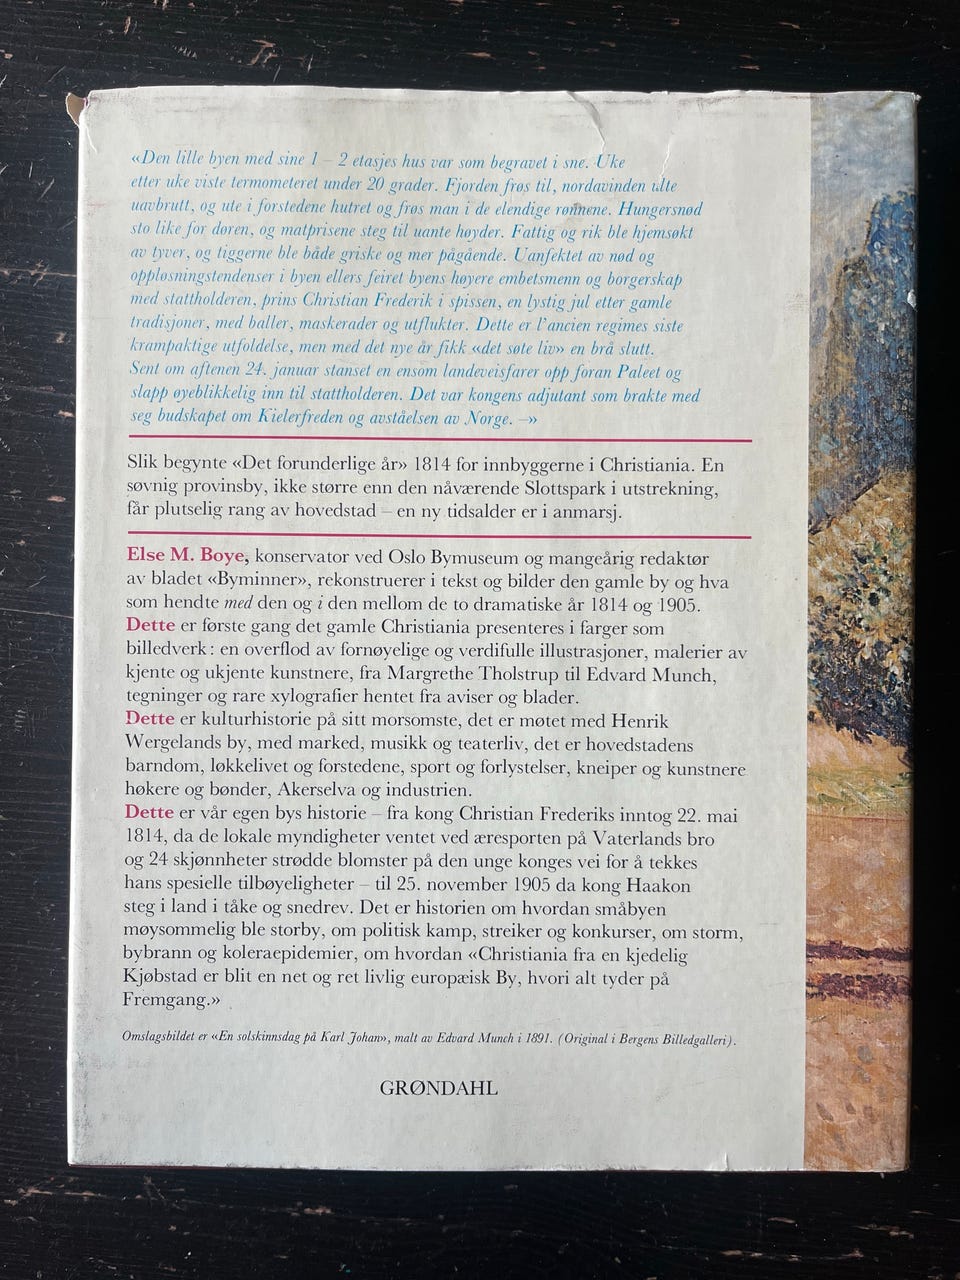 «Den lille byen med sine 1 – 2 etasjes hus var som begravet i sne. Uke
etter uke viste termometeret under 20 grader. Fjorden frøs til, nordavinden ulte
uavbrutt, og ute i forstedene hutret og frøs man i de elendige rønnene. Hungersnød
sto like for døren, og matprisene steg til uante høyder. Fattig og rik ble hjemsøkt
av tyver, og tiggerne ble både griske og mer pågående. Uanfektet av nød og
oppløsningstendenser i byen ellers feiret byens høyere embetsmenn og borgerskap
med stattholderen, prins Christian Frederik i spissen, en lystig jul etter gamle
tradisjoner, med baller, maskerader og utflukter. Dette er l'ancien regimes siste
krampaktige utfoldelse, men med det nye år fikk «det søte liv» en brå slutt.
Sent om aftenen 24. januar stanset en ensom landeveisfarer opp foran Paleet og
slapp øyeblikkelig inn til stattholderen. Det var kongens adjutant som brakte med
seg budskapet om Kielerfreden og avståelsen av Norge. –»
Slik begynte «Det forunderlige år» 1814 for innbyggerne i Christiania. En
søvnig provinsby, ikke større enn den nåværende Slottspark i utstrekning,
får plutselig rang av hovedstad – en ny tidsalder er i anmarsj.
Else M. Boye, konservator ved Oslo Bymuseum og mangeårig redaktør
av bladet «Byminner», rekonstruerer i tekst og bilder den gamle by og hva
som hendte med den og i den mellom de to dramatiske år 1814 og 1905.
Dette er første gang det gamle Christiania presenteres i farger som
billedverk: en overflod av fornøyelige og verdifulle illustrasjoner, malerier av
kjente og ukjente kunstnere, fra Margrethe Tholstrup til Edvard Munch,
tegninger og rare xylografier hentet fra aviser og blader.
Dette er kulturhistorie på sitt morsomste, det er møtet med Henrik
Wergelands by, med marked, musikk og teaterliv, det er hovedstadens
barndom, løkkelivet og forstedene, sport og forlystelser, kneiper og kunstnere
høkere og bønder, Akerselva og industrien.
Dette er vår egen bys historie – fra kong Christian Frederiks inntog 22. mai
1814, da de lokale myndigheter ventet ved æresporten på Vaterlands bro
og 24 skjønnheter strødde blomster på den unge konges vei for å tekkes
hans spesielle tilbøyeligheter – til 25. november 1905 da kong Haakon
steg i land i tåke og snedrev. Det er historien om hvordan småbyen
møysommelig ble storby, om politisk kamp, streiker og konkurser, om storm,
bybrann og koleraepidemier, om hvordan «Christiania fra en kjedelig
Kjøbstad er blit en net og ret livlig europæisk By, hvori alt tyder på
Fremgang.»
Omslagsbildet er «En solskinnsdag på Karl Johan», malt av Edvard Munch i 1891. (Original i Bergens Billedgalleri).
GRØNDAHL